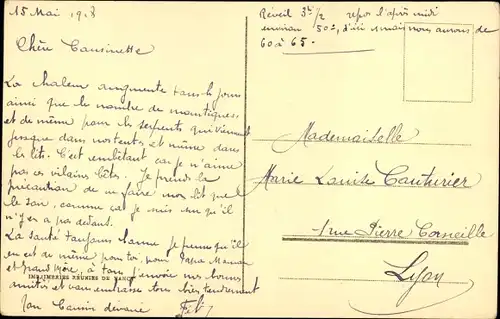 15 Mai 1918
Chère Cousinette
La chaleur augmente tous les jours
ainsi que le nombre de moustiques
et de même pour les serpents qui viennent
jusque dans nos tentes et même dans
les lits. C'est embêtant car je n'aime
pas ces vilaines bêtes. Je prends la
précaution de ne faire mon lit que
le soir, comme car je suis sur qu'il
n'y en a pas dedans.
La santé toujours bonne je pense qu'il
en est de même pour toi, pour Papa Maman
et Grand Mère, à tous j'envoie mes bonnes
amitiés et vous embrasse tous bien tendrement
Ton Cousin dévoué
IMPRIMERIES RÉUNIES DE NANCY
Réveil 3h 1/2 repos l'après midi
environ 50°, d'ici 1 mois nous aurons de
60 à 65.
Mademoiselle
Marie Louise Couturier
1 rue Pierre Corneille
Lyon